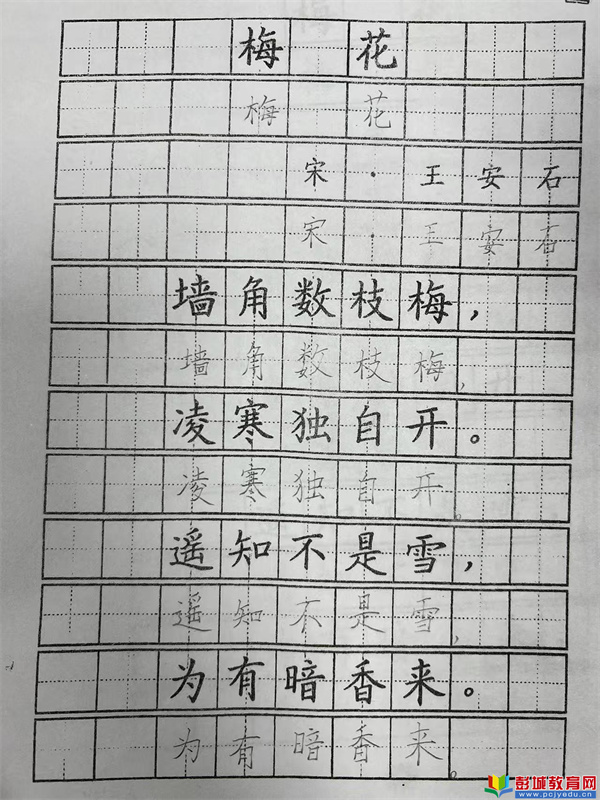 梅花
梅花
宋·王安石
宋·王安石
墙角数枝梅，
墙角数枝梅，
凌寒独自开。
凌寒独自开。
遥知不是雪，
遥知不是雪，
为有暗香来。
为有暗香来。
彭城教育网
www.pcjyedu.cn